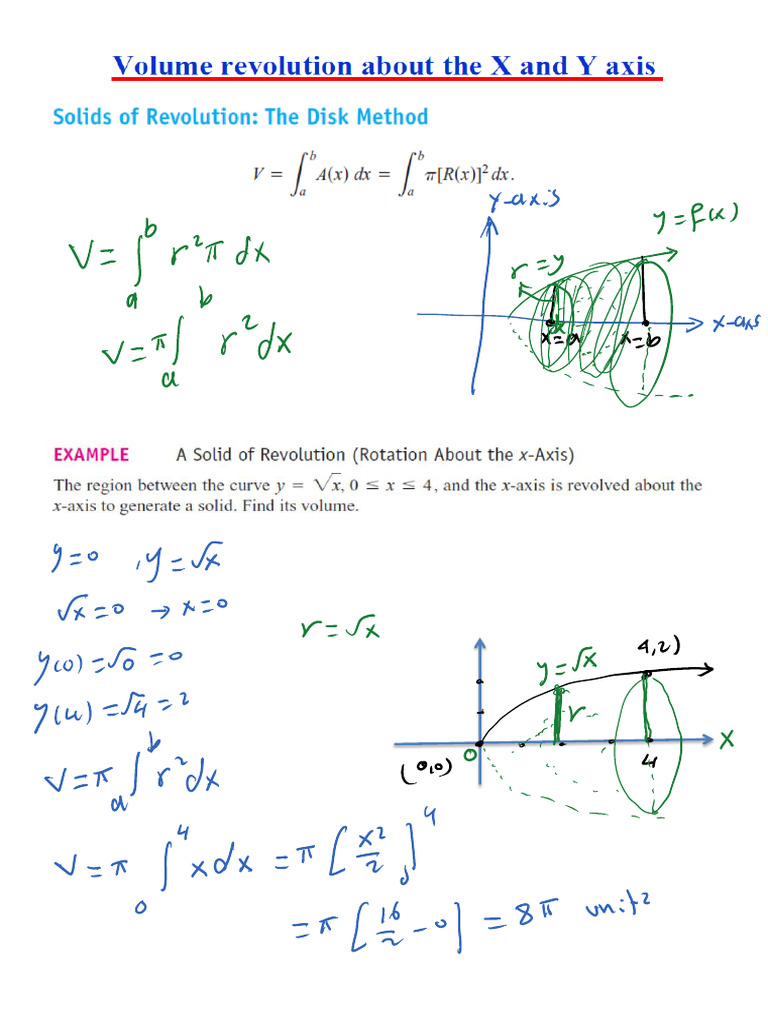 Volume revolution about the X and Y axis
Solids of Revolution: The Disk Method
V = ∫ₐᵇ A(x) dx = ∫ₐᵇ π[R(x)]² dx.
Y-axis
y=f(x)
V=∫ₐᵇ r²π dx
r=y
x-axis
x=a x=b
V=π∫ₐᵇ r²dx
EXAMPLE A Solid of Revolution (Rotation About the x-Axis)
The region between the curve y = √x, 0 ≤ x ≤ 4, and the x-axis is revolved about the
x-axis to generate a solid. Find its volume.
y=0 , y=√x
√x=0 → x=0
r=√x
y(0)=√0=0
4,2)
y=√x
y(4)=√4=2
r
X
0
(0,0)
4
V=π∫ₐᵇ r²dx
V=π ∫₀⁴ xdx =π[x²/2]₀⁴
=π[16/2-0]=8π unit²